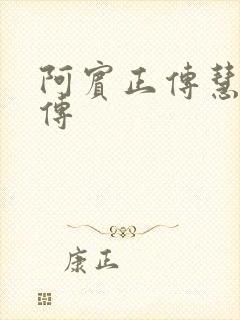 阿賓正傳慧
傳
康正